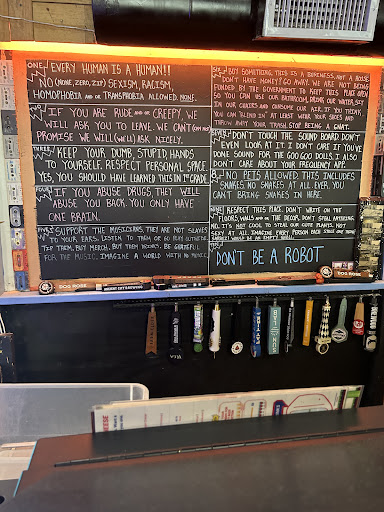 ONE. EVERY HUMAN IS A HUMAN!!
NO (NONE, ZERO, ZIP) SEXISM, RACISM,
HOMOPHOBIA AND OR TRANSPHOBIA ALLOWED. NONE.
TWO. IF YOU ARE RUDE AND OR CREEPY, WE
WILL ASK YOU TO LEAVE. WE CAN'T
PROMISE WE WILL (WE'LL) ASK NICELY.
THREE. KEEP YOUR DUMB, STUPID, HANDS
TO YOURSELF, RESPECT PERSONAL SPACE.
YES, YOU SHOULD HAVE LEARNED THIS IN 1st GRADE.
FOUR. IF YOU ABUSE DRUGS, THEY WILL
ABUSE YOU BACK. YOU ONLY HAVE
ONE BRAIN.
FIVE. SUPPORT THE MUSICIANS, THEY ARE NOT SLAVES
TO YOUR EARS. LISTEN TO THEM OR GO PLAY OUTSIDE.
TIP THEM, BUY MERCH, BUY THEM BOOZE. BE GRATEFUL
FOR THE MUSIC, IMAGINE A WORLD WITH NO MUSIC.
SIX. BUY SOMETHING, THIS IS A BUSINESS, NOT A HOUSE
DON'T HAVE MONEY? GO AWAY. WE ARE NOT BEING
FUNDED BY THE GOVERNMENT TO KEEP THIS PLACE OPEN
SO YOU CAN USE OUR BATHROOM, DRINK OUR WATER, SIT
IN OUR CHAIRS AND CONSUME OUR AIR. IF YOU THINK
YOU CAN BLEND IN AT LEAST WEAR YOUR SHOES AND
THROW AWAY YOUR TRASH. STOP BEING A
SEVEN. DON'T TOUCH THE SOUND BOARD DON'T
EVEN LOOK AT IT. I DON'T CARE IF YOU'VE
DONE SOUND FOR THE GOO GOO DOLLS. I ALSO
DON'T CARE ABOUT YOUR FREQUENCY APP.
NO PETS ALLOWED. THIS INCLUDES
SNAKES. NO SNAKES AT ALL. EVER. YOU
CAN'T BRING SNAKES IN HERE.
RESPECT THIS PLACE. DON'T WRITE ON THE
FLOORS, WALLS AND OR THE DECOR. DON'T STEAL ANYTHING
NO, IT'S NOT COOL TO STEAL OUR CUTE PLANTS. NOT
SEXY AT ALL. IMAGINE EVERY PERSON EACH STOLE ONE
WOULD BE AN EMPTY
DON'T BE A ROBOT
DOG ROSE
DOG ROSE